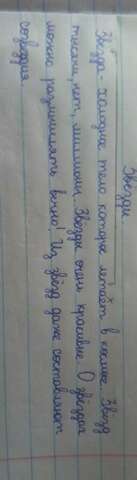 Звезды.
Звезда - холодное тело которое летает в космосе. Звёзд
тысячи, нет, миллионы. Звезды очень красивые. О звёздах
можно размышлять вечно! Из звёзд даже составляют
созвездия